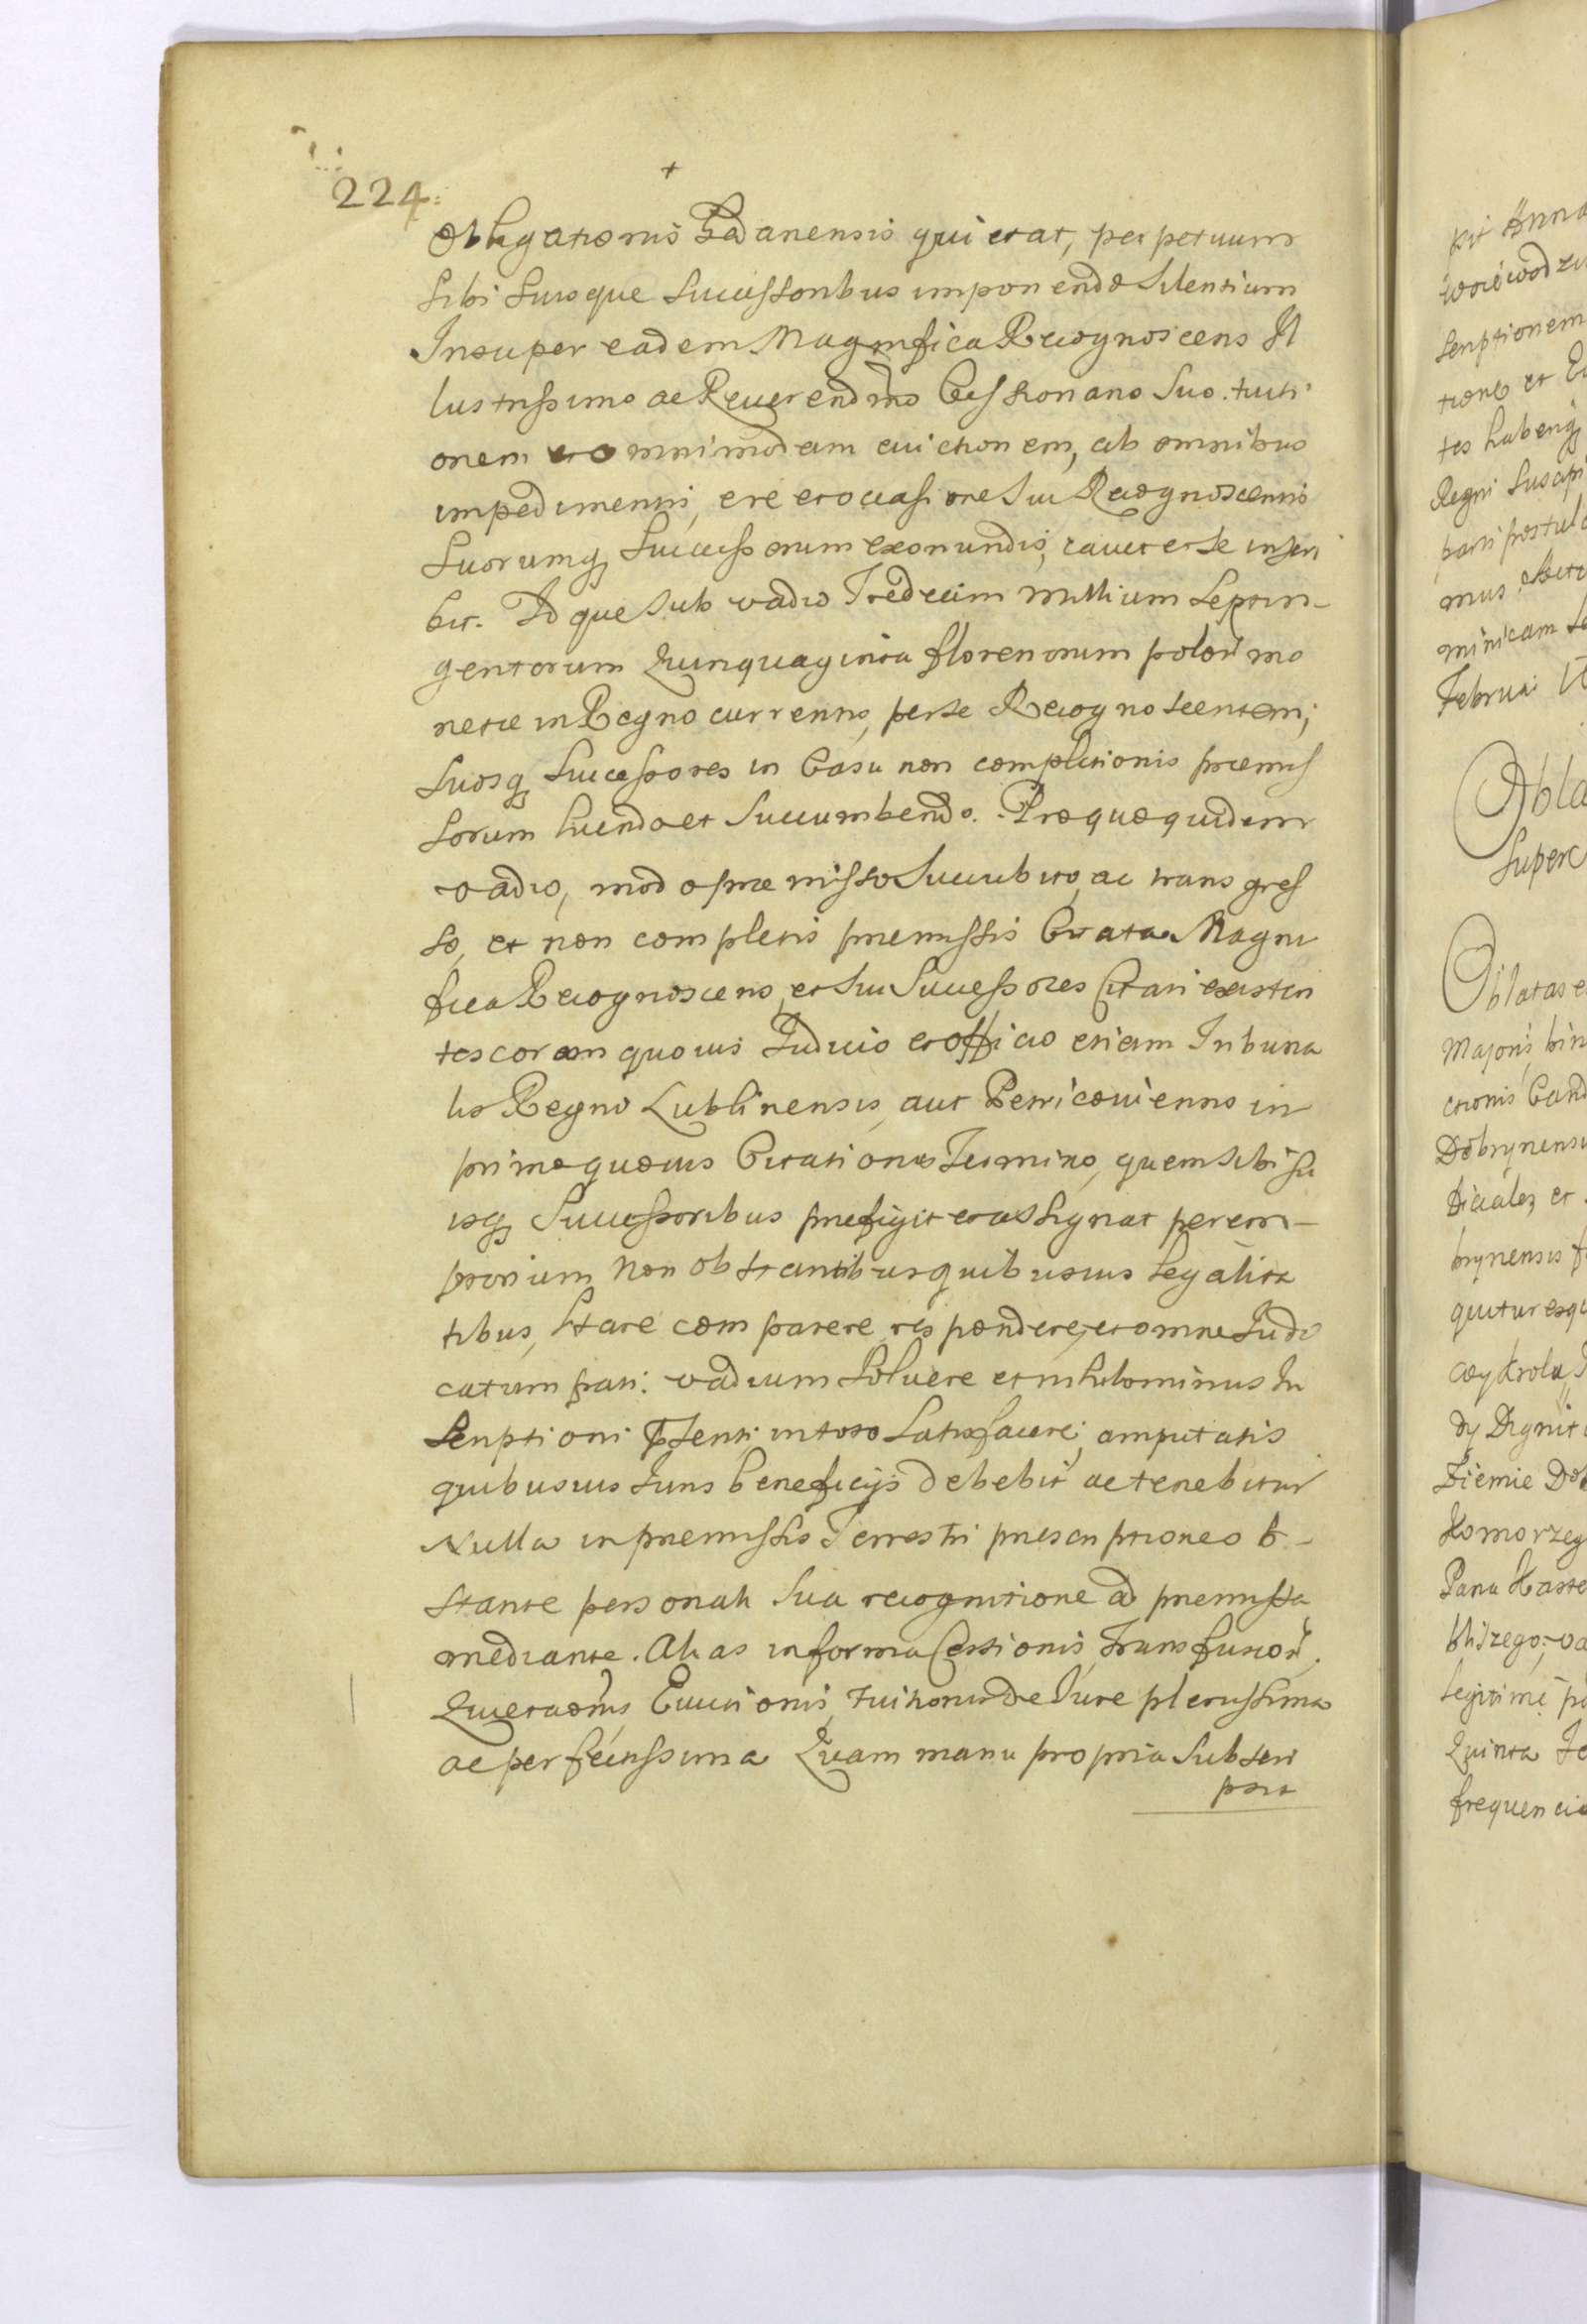 224.
Obligationis Gedanensis quietat, perpetuum
sibi suisque Successoribus imponendo Silentium
Insuper eadem Magnifica Recognoscens Il
lustrissimo ac Reverendmo Cessionario Suo. tuiti
onem et omnimodam evictionem, ab omnibus
impedimentis, ere et occasione Sui Recognoscentis
Suorumq Successorum exoriundis, cavet et se inscri
bit. Id que Sub vadio Tredecim millium Septin-
gentorum Quinquaginta florenorum polon mo
netæ in Regno currentis, per se Recognoscentem,
Suosq Successores in Casu non completionis præmis
sorum luendo et Succumbendo. Pro quo quidem
vadio, modo præmisso Succubito, ac transgres
so, et non completis præmissis Citata Magni
fica Recognoscens, et Sui Successores Citati existen
tes coram quovis Judicio et officio etiam Tribuna
lis Regni Lublinensis, aut Petricoviensis in
primo quovis Citationis Termino, quem sibi su
isq Successoribus præfigit et assignat perem-
ptorium, Non obstantibus quibusvis legalita
tibus, Stare comparere, respondere, et omne Judi
catum pati: vadium Solvere et nihilominus In
scriptioni pnsenti in toto Satisfacere, amputatis
quibusvis Juris beneficijs debebit ac tenebitur
Nulla in præmissis Terrestri præscriptione ob-
stante personali Sua recognitione ad præmissa
mediante. Alias in forma Cessionis, Transfusion,
Quietaonis Evictionis, tuitionis de Jure plenissima
ac perfectissima Quam manu propria Subscri
psit
pit Anna
Obla
Super
Oblatas
Majoris
ctionis
diciales, et
legitime
Quinta